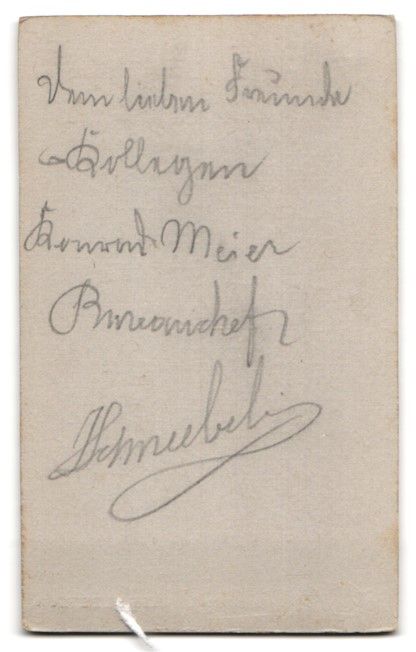 Dem lieben Freunde
Kollegen
Konrad Meier
Bureauchef
Schneebeli